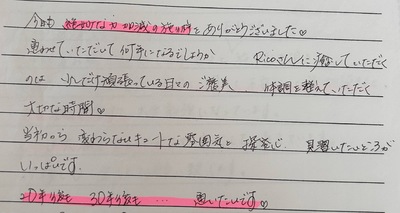 今回も 絶妙な力加減の施術をありがとうございました♡
思わせていただいて何年になるでしょうか Ricoさんに癒していただく
のは いただす頑張っている日々のご褒美 、体調を整えていただく
大切な時間♡
当初から変わらないキュートな雰囲気と 探究心 見習いたいところが
いっぱいです.
20年後も 30年後も … 思いたいです♡